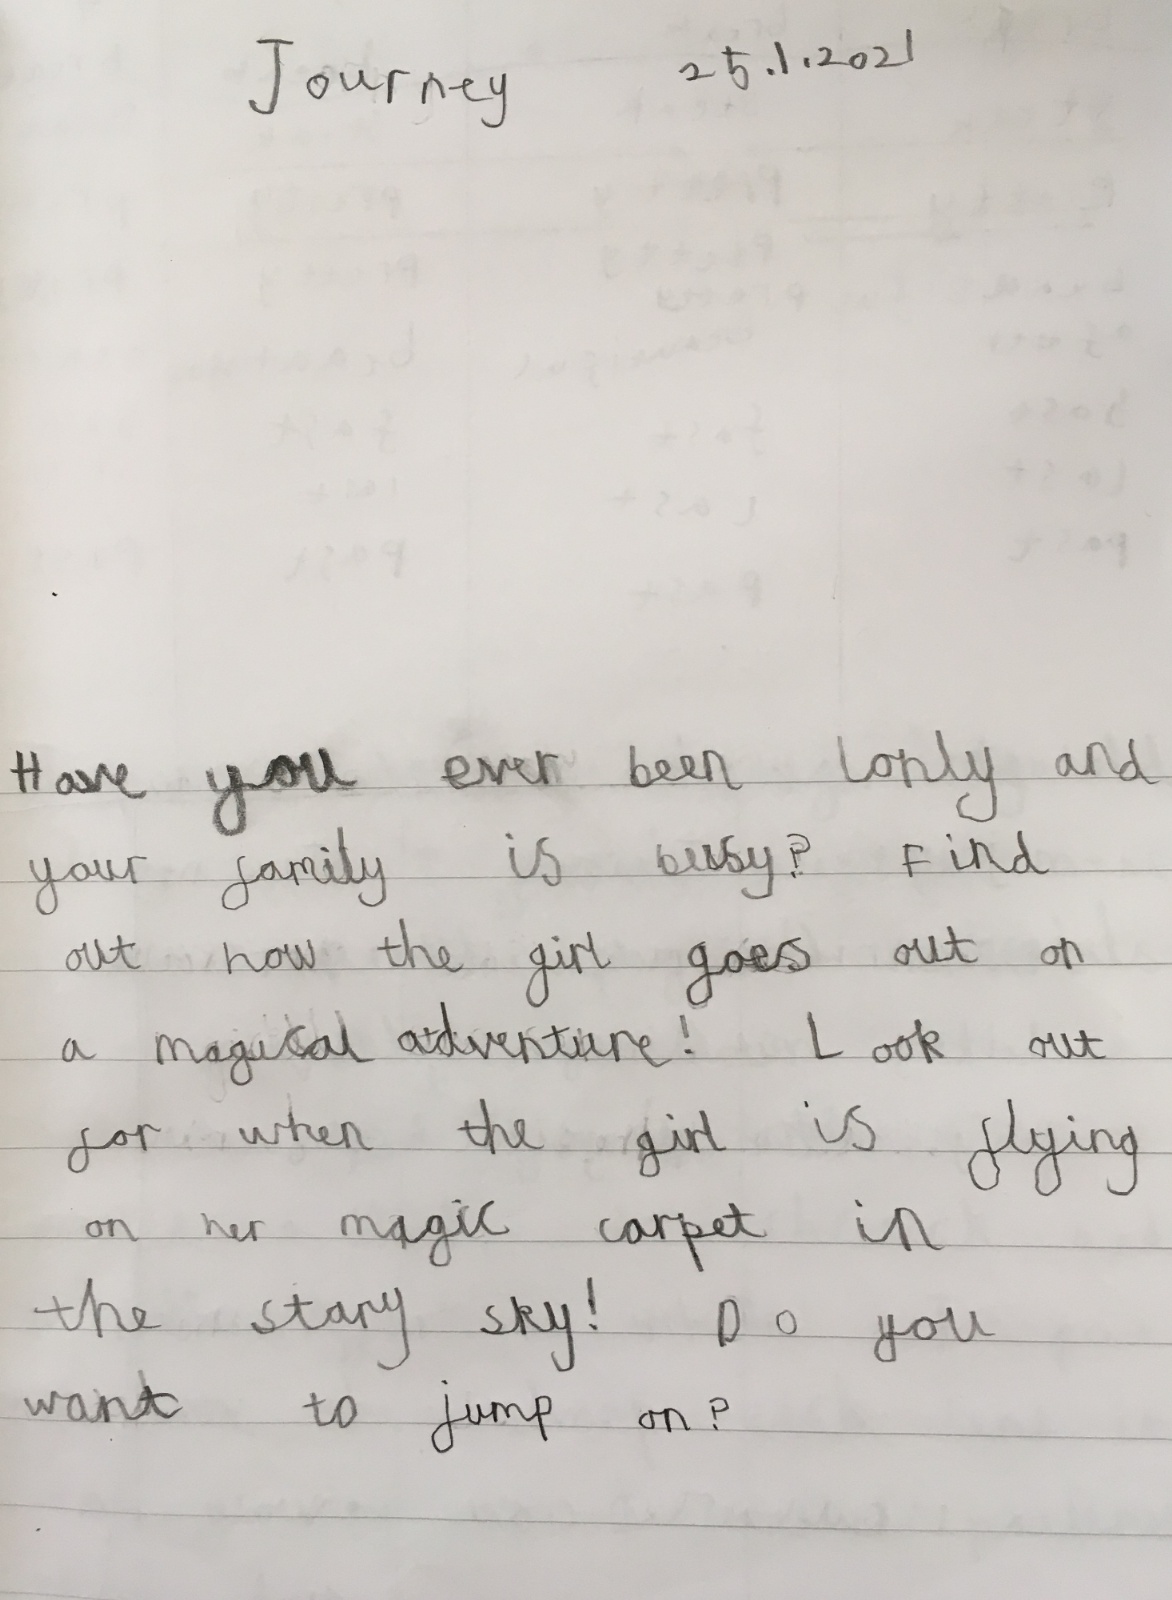 Journey 25.1.2021
Have you ever been lonly and
your family is busy? Find
out how the girl goes out on
a magical adventure! Look out
for when the girl is flying
on her magic carpet in
the stary sky! Do you
want to jump on?